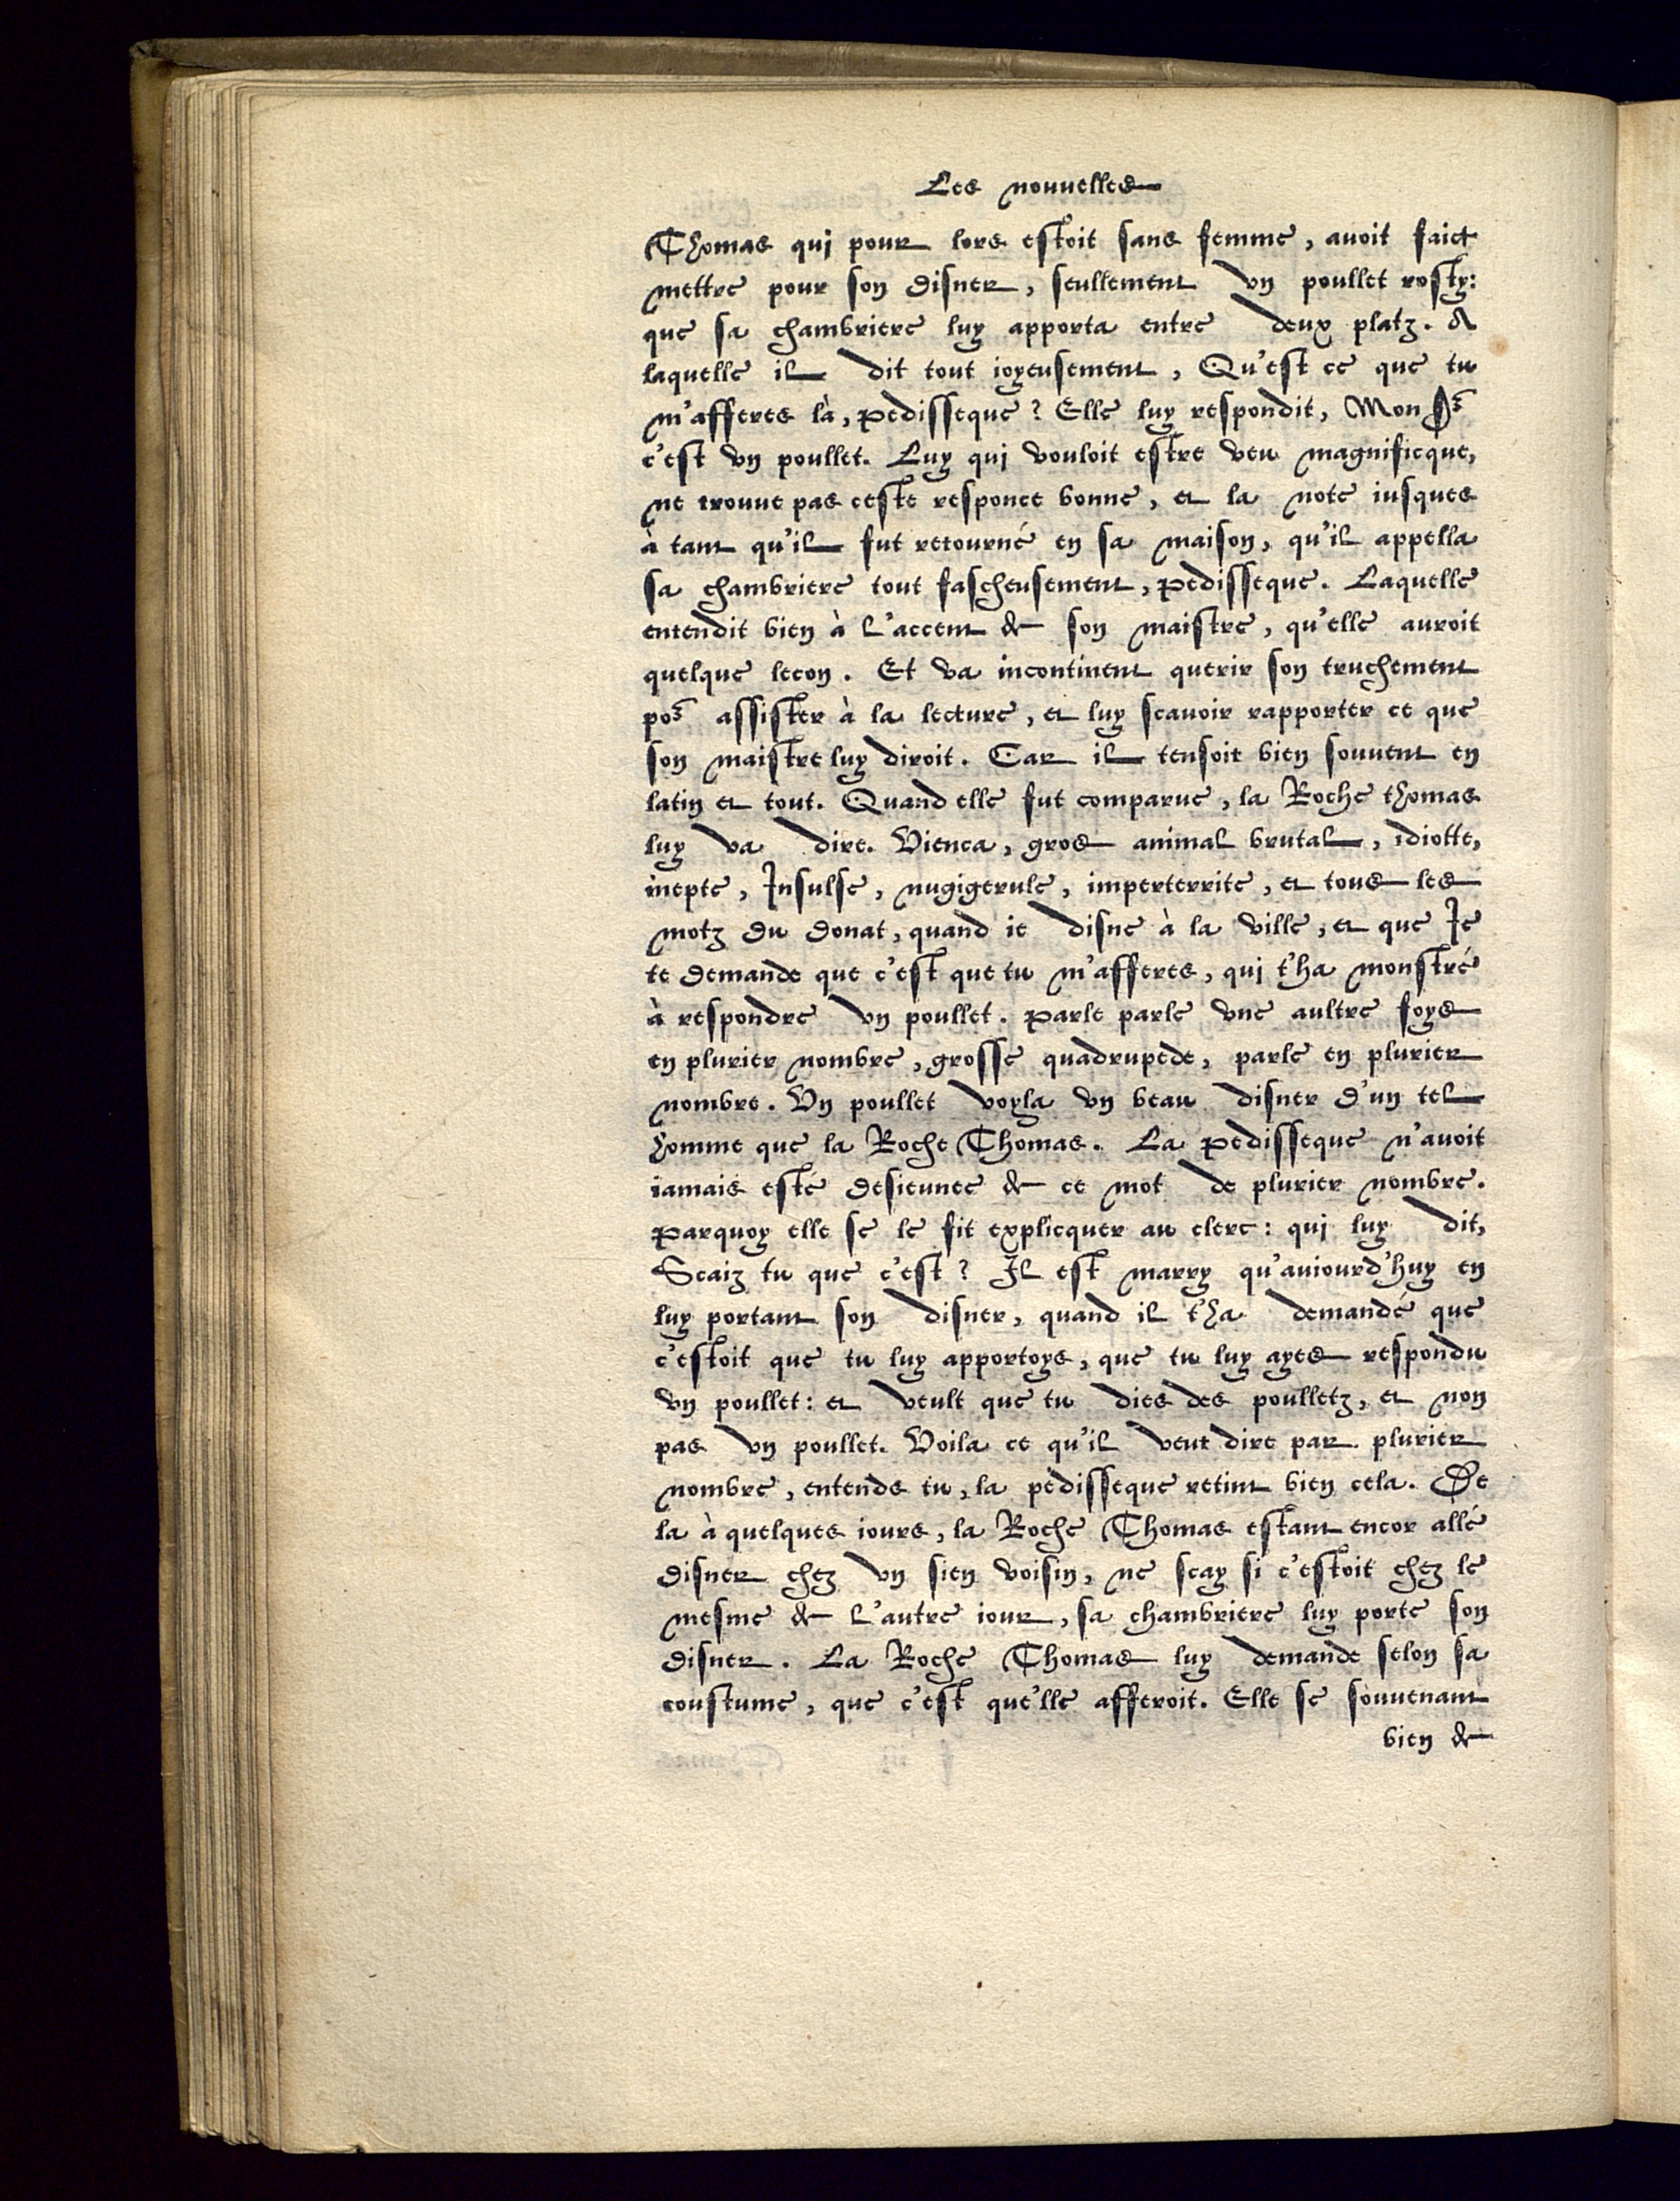 Les nouuelles
Thomas qui pour lors estoit sans femme, auoit faict
mettre pour son disner, seullement vn poullet rosty:
que sa chambriere luy apporta entre deux platz. A
laquelle il dit tout ioyeusement, Qu'est ce que tu
m'afferes là, pedisseque? Elle luy respondit, Mon Sr
c'est vn poullet. Luy qui vouloit estre veu magnificque,
ne trouue pas ceste responce bonne, et la note iusques
à tant qu'il fut retourné en sa maison, qu'il appella
sa chambriere tout fascheusement, pedisseque. Laquelle
entendit bien à l'accent de son maistre, qu'elle auroit
quelque lecon. Et va incontinent querir son truchement
por assister à la lecture, et luy scauoir rapporter ce que
son maistre luy diroit. Car il tensoit bien souuent en
latin et tout. Quand elle fut comparue, la Roche thomas
luy va dire. Vienca, gros animal brutal, idiotte,
inepte, Insulse, nugigerule, imperterrite, et tous les
motz du donat, quand ie disne à la ville, et que Ie
te demande que c'est que tu m'afferes, qui t'ha monstré
à respondre vn poullet. parle parle vne aultre foys
en plurier nombre, grosse quadrupede, parle en plurier
nombre. Vn poullet voyla vn beau disner d'un tel
homme que la Roche Thomas. La pedisseque n'auoit
iamais esté desieunee de ce mot de plurier nombre.
parquoy elle se le fit explicquer au clerc: qui luy dit,
Scaiz tu que c'est? Il est marry qu'auiourd'huy en
luy portant son disner, quand il t'ha demandé que
c'estoit que tu luy apportoys, que tu luy ayes respondu
vn poullet: et veult que tu dies des poulletz, et non
pas vn poullet. Voila ce qu'il veut dire par plurier
nombre, entends tu, la pedisseque retint bien cela. De
la à quelques iours, la Roche Thomas estant encor allé
disner chez vn sien voisin, ne scay si c'estoit chez le
mesme de l'autre iour, sa chambriere luy porte son
disner. La Roche Thomas luy demande selon sa
coustume, que c'est que'lle afferoit. Elle se souuenant
bien de